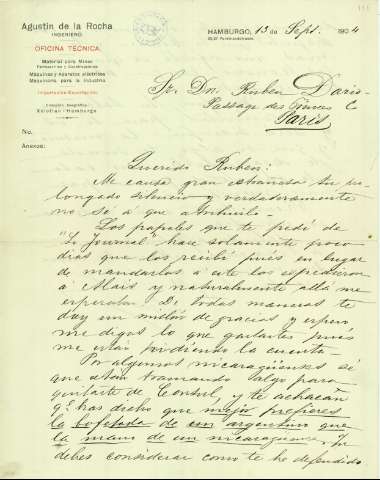 Agustín de la Rocha
INGENIERO
OFICINA TÉCNICA
Material para Minas
Ferrocarriles y Construcciones
Máquinas y Aparatos eléctricos
Maquinaria para la Industria
Importación-Exportación
Dirección telegráfica
Xolotlan-Hamburgo
HAMBURGO, 13 de Sept. 1904
Sr. Dn. Ruben Dario-
Passage des Princes
Paris
No.
Anexos:
Querido Ruben:
Me causa gran estrañesa tu pro-
longado silencio y verdaderamente
no se a que atribuirlo-
Los papeles que te pedí de
"Le Journal" hace solamente pocos
dias que los recibí pues en lugar
de mandarlos a este los expidieron
a y naturalmente allá me
esperaban De todas maneras te
doy un millón de gracias y espero
me digas lo que gastastes pues
me están pidiendo la cuenta
Por algunos nicaragüenses sé
que están tramando algo para
quitarte de Consul, y te achacan
q? has dicho que mejor prefieres
la bofetada de un argentino que
la mano de un nicaraguense. Tu
debes considerar como te he defendido